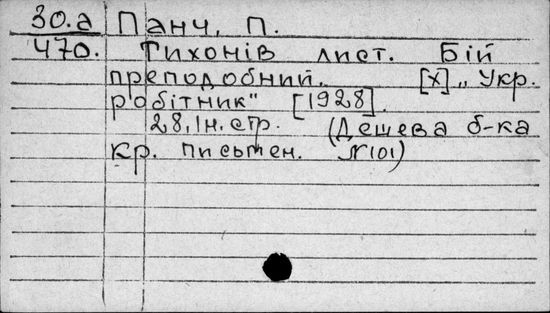 30.а Панч, П.
470. Тихонів лист. Бій
преподобний. [Х] „Укр.
робітник" [1928].
28, 1н. стр. (Дешева б-ка
кр. письмен. №101)